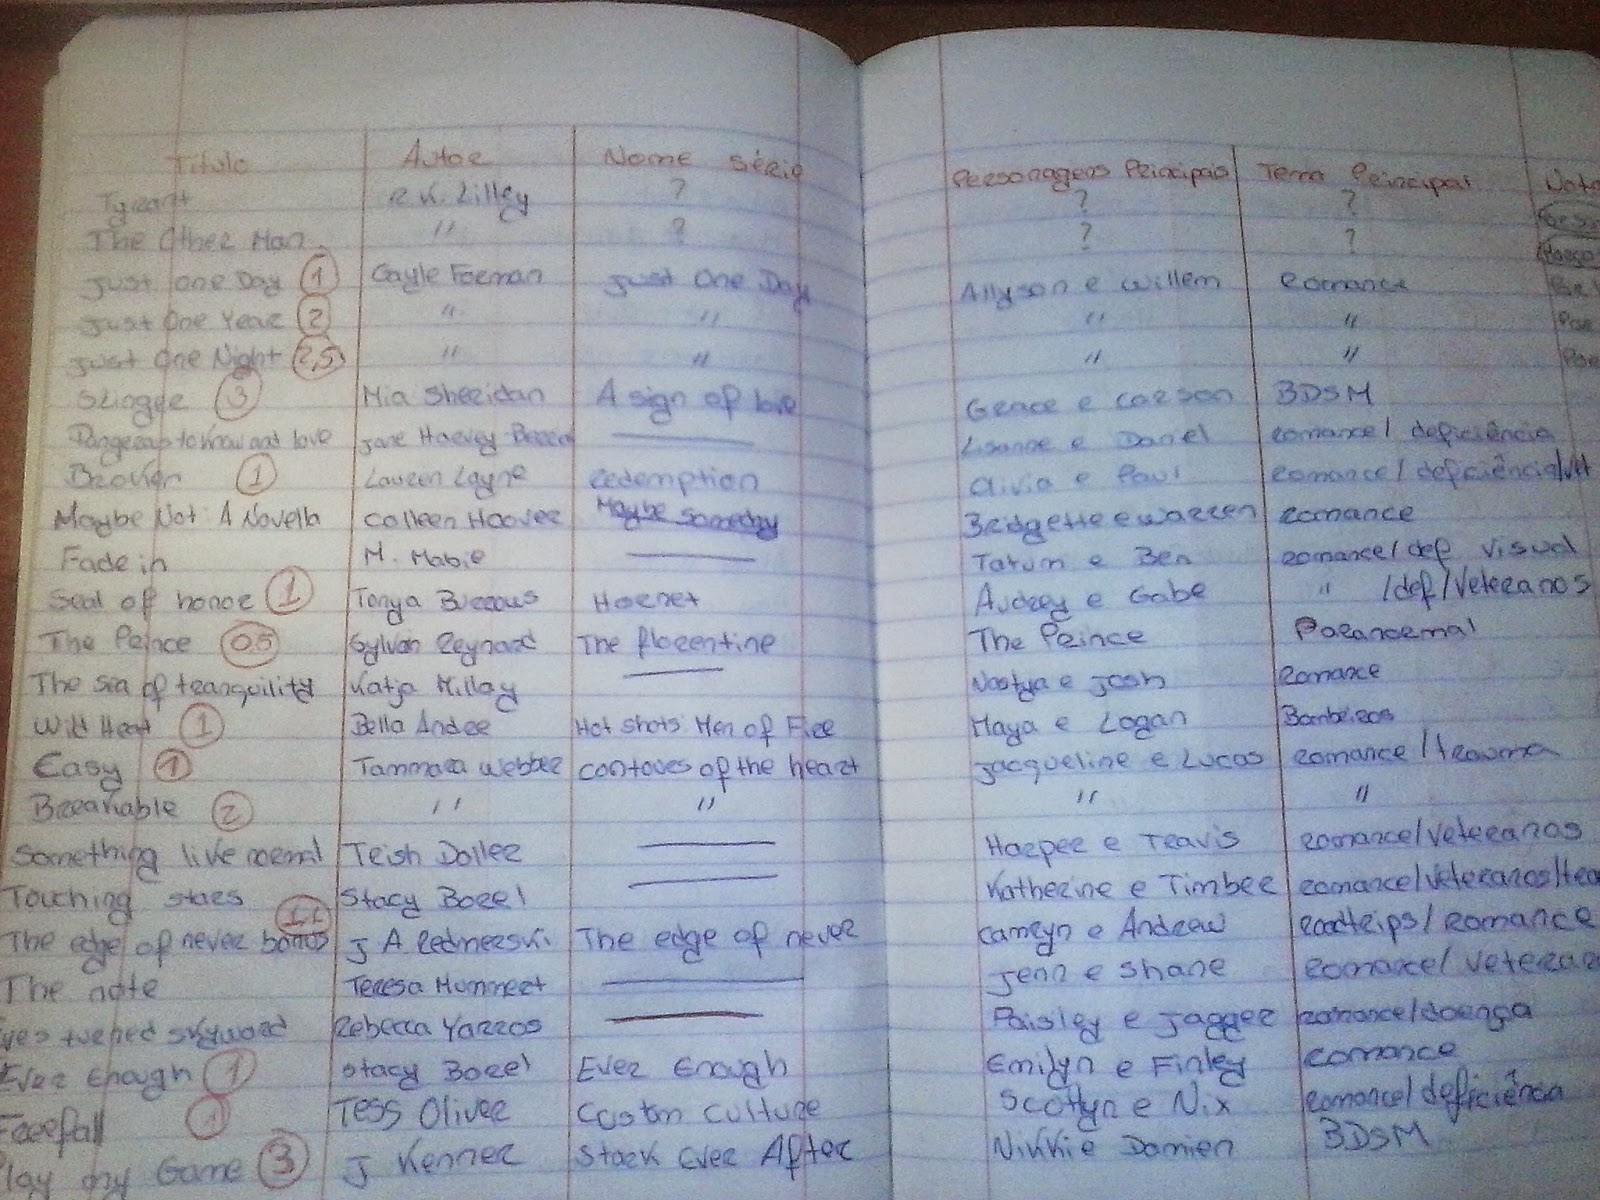 Titulo Autor Nome Série Personagens Principais Tema Principal
Tyrant R.K. Lilley ? ? ?
The Other Man " ? ? ?
Just One Day 1 Gayle Forman Just One Day Allyson e Willem Romance
Just One Year 2 " " " "
Just One Night 2,5 " " " "
Stinger 3 Mia Sheridan A sign of love Grace e Carson BDSM
Jane Harvey-Berrick Lisanne e Daniel romance/ deficiência
Broken 1 Lauren Layne Redemption Olivia e Paul romance/ deficiência/
Maybe Not A Novella Colleen Hoover Maybe Someday Bridgette e Warren romance
Fade in M. Mabie Tatum e Ben romance/def visual
Seal of honor 1 Tonya Burrows Hornet Audrey e Gabe " /def/Veteranos
The Prince 0.5 Sylvain Reynard The florentine The Prince Paranormal
The sea of tranquility Katja Millay Nastya e Josh Romance
Wild Heat 1 Bella Andre Hot Shots: Men of Fire Maya e Logan Bombeiros
Easy 1 Tammara Webber contours of the heart Jacqueline e Lucas romance /trauma
Breakable 2 " " " "
Something like normal Trish Doller Harper e Travis romance/veteranos
Touching stars Stacy Borel Katherine e Timber romance/veteranos/
The edge of never bonus 1.1 J A Redmerski The edge of never Camryn e Andrew roadtrips/romance
The note Teresa Mummert Jenn e Shane romance/
turned skyward Rebecca Yarros Paisley e Jagger romance/doença
Ever Enough 1 Stacy Borel Ever Enough Emilyn e Finley romance
Freefall 1 Tess Oliver Custom Culture Scottlyn e Nix romance/deficiência
my Game 3 J Kenner Stark Ever After Nikki e Damien BDSM